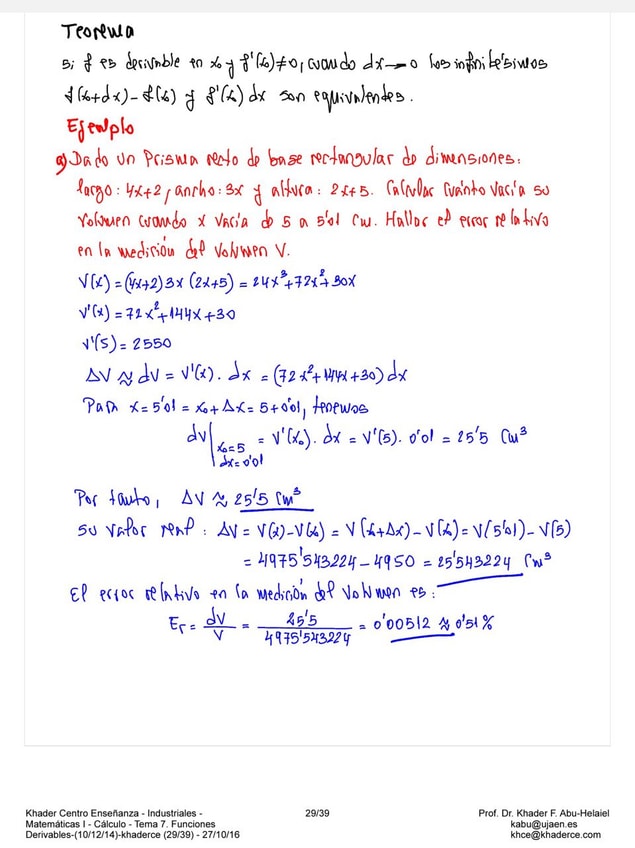 Teorema
Si f es derivable en x₀ y f'(x₀)≠0, cuando dx→0 los infinitésimos
f(x₀+dx)-f(x₀) y f'(x₀)dx son equivalentes.
Ejemplo
a) Dado un Prisma recto de base rectangular de dimensiones:
largo: 4x+2, ancho: 3x y altura: 2x+5. Calcular cuánto varía su
volumen cuando x varía de 5 a 5'01 cm. Hallar el error relativo
en la medición del volumen V.
V(x)=(4x+2)3x(2x+5)=24x³+72x²+30x
V'(x)=72x²+144x+30
V'(5)=2550
ΔV≈dV=V'(x).dx=(72x²+144x+30)dx
Para x=5'01=x₀+Δx=5+0'01, tenemos
dV|x₀=5 dx=0'01 = V'(x₀).dx = V'(5).0'01 = 25'5 cm³
Por tanto, ΔV≈25'5 cm³
su valor real: ΔV=V(x)-V(x₀)=V(x₀+Δx)-V(x₀)=V(5'01)-V(5)
=4975'543224-4950=25'543224 cm³
El error relativo en la medición del volumen es:
Er = dV/V = 25'5/4975'543224 = 0'00512 ≈ 0'51%
Khader Centro Enseñanza - Industriales -
Matemáticas I - Cálculo - Tema 7. Funciones
Derivables-(10/12/14)-khaderce (29/39) - 27/10/16
29/39
Prof. Dr. Khader F. Abu-Helaiel
kabu@ujaen.es
khce@khaderce.com